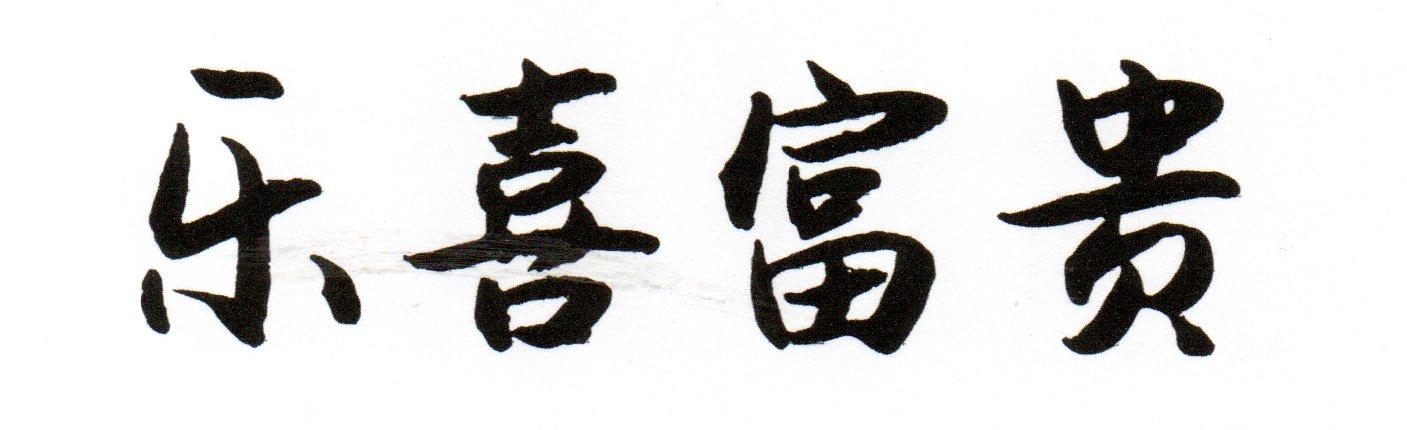 乐喜富贵